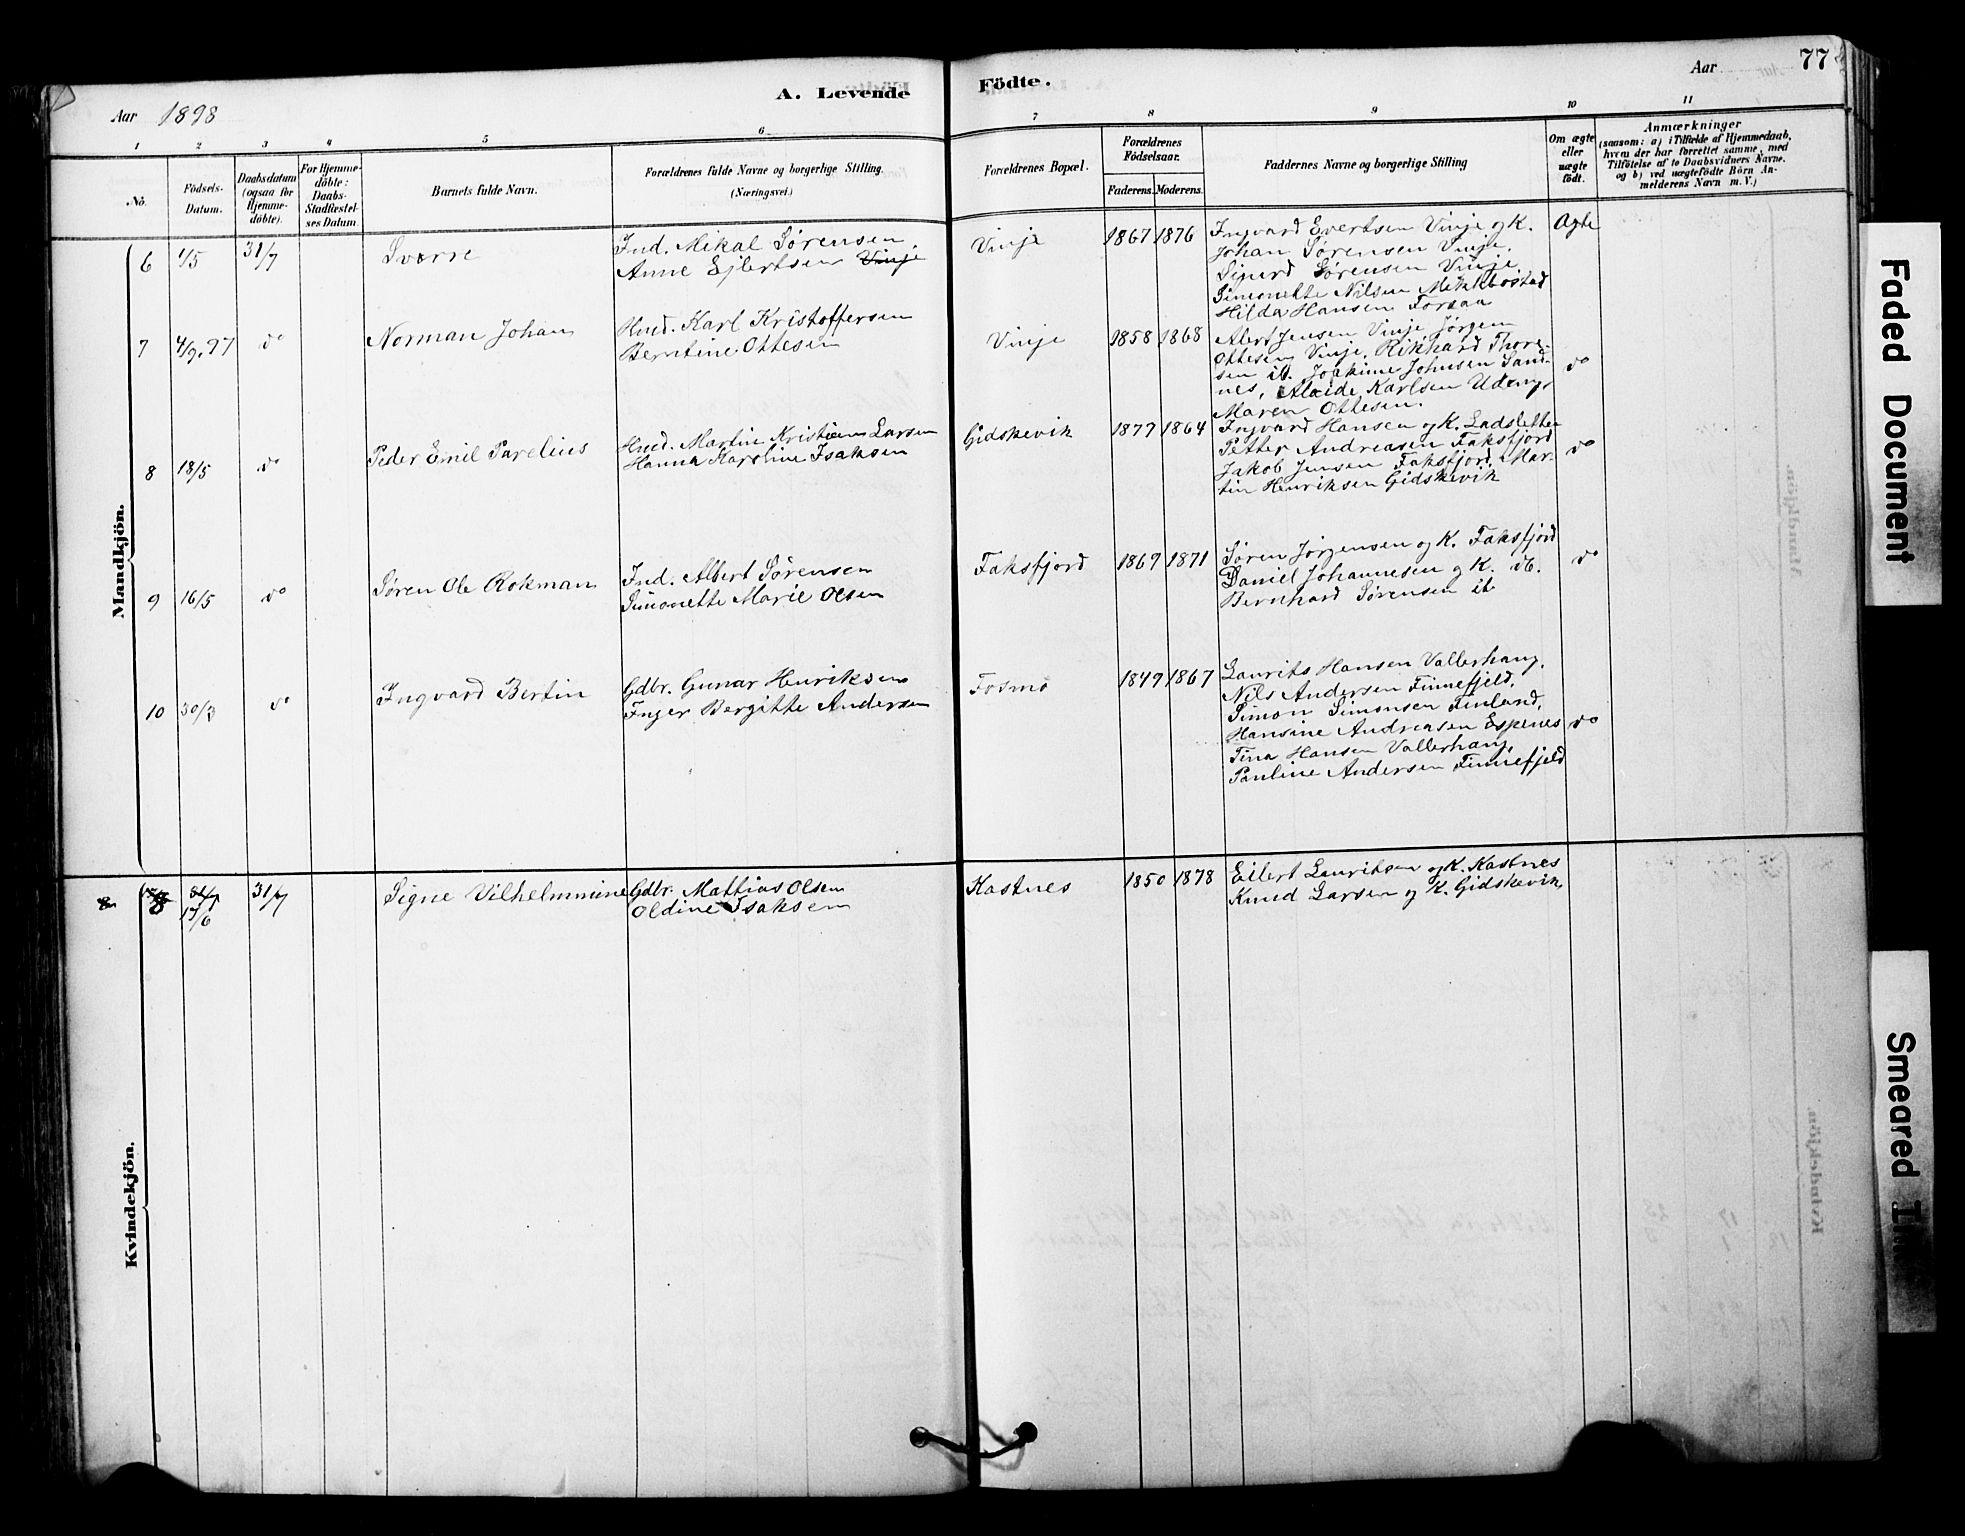 A. Levende
Födte.
Aar
77
Aar 1898
1 2 3 4 5 6 7 8 9 10 11
Nô.
Födsels-Datum.
Daabsdatum (ogsaa for Hjemme-döbte).
For Hjemme-döbte: Daabs-Stadfæstel-ses Datum.
Barnets fulde Navn.
Forældrenes fulde Navne og borgerlige Stilling. (Næringsvei.)
Forældrenes Bopæl.
Forældrenes Födselsaar.
Faderens. Moderens.
Faddernes Navne og borgerlige Stilling
Om ægte eller uægte födt.
Anmærkninger
(saasom: a) i Tilfælde af Hjemmedaab,
hvem der har forrettet samme, med
Tilföielse af to Daabsvidners Navne.
og b) ved uægtefödte Börn An-
melderens Navn m. V.)
Mandkjön.
6 1/5 31/7 Sverre
Ind. Mikal Sørensen,
Anne Ejlertsen Vinje
Vinje 1867 1876
Ingvard Evertsen Vinje og K.
Johan Sørensen Vinje,
Sigurd Sørensen Vinje
Simonette Nilsen Mekkbostad
Hilda Hansen Forsaa
Ægte
7 4/9.97 do Norman Johan
Hmd. Karl Kristoffersen
Berntine Ottesen
Vinje 1858 1868
Albert Jensen Vinje Jørgen
Ottesen Vinje, Rikhard Thore-
sen ib. Joakime Johnsen Sand-
nes, Alaide Karlsen Udeng,
Maren Ottesen.
do
8 18/5 do Peder Emil Parelius
Hmd. Martin Kristian Larsen
Hanna Karoline Isaksen
Gidskevik 1877 1864
Ingvard Hansen og K. Ladsletten
Petter Andreasen Faksfjord
Jakob Jensen Faksfjord, Mar-
tin Henriksen Gidskevik
do
9 16/5 do Søren Ole Rokman
Ind. Albert Sørensen
Simonette Marie Olsen
Faksfjord 1869 1871
Søren Jørgensen og K. Faksfjord
Daniel Johannesen og K. ib.
Bernhard Sørensen ib
do
10 30/3 do Ingvard Bertin
Gdbr. Gunar Henriksen
Inger Bergitte Andersen
Fosmo 1849 1867
Laurits Hansen Vallerhaug,
Nils Andersen Finnefjeld,
Simon Simonsen Finland,
Hansine Andreasen Espenes
Tina Hansen Vallerhaug,
Pauline Andersen Finnefjeld
do
Kvindekjön.
8 17/6 31/7 Signe Vilhelmmine
Gdbr. Mattias Olsen
Oldine Isaksen
Kastnes 1850 1878
Eilert Lauritsen og K. Kastnes
Knud Larsen og K. Gidskevik,
Faded Document
Smeared